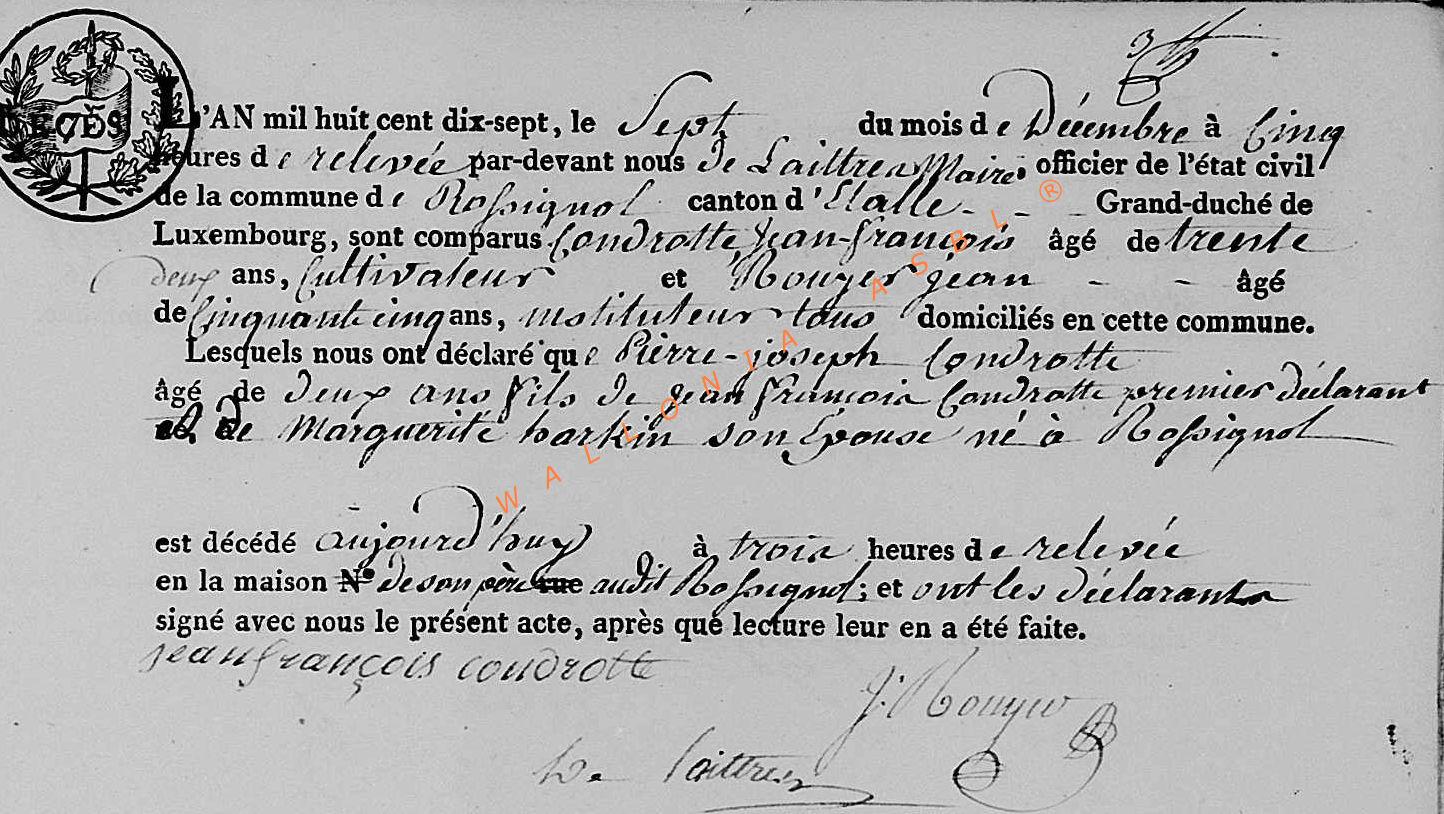 DÉCÈS
L'AN mil huit cent dix-sept, le Sept du mois de Décembre à Cinq
heures de relevée par-devant nous de Laittres Maire officier de l'état civil
de la commune de Rossignol canton d'Etalle - - - Grand-duché de
Luxembourg, sont comparus Condrotte Jean-françois âgé de trente
deux ans, Cultivateur et Rouyer jean - - âgé
de Cinquante cinq ans, instituteur tous domiciliés en cette commune.
Lesquels nous ont déclaré que Pierre-joseph Condrotte
âgé de deux ans fils de Jean françois Condrotte premier déclarant
et de Marguerite harkin son Epouse né à Rossignol
est décédé aujourd'huy à trois heures de relevée
en la maison N° de son père rue audit Rossignol; et ont les déclarants
signé avec nous le présent acte, après que lecture leur en a été faite.
jean françois condrotte
J. Rouyer
De Laittres
WALLONIA ASBL ®